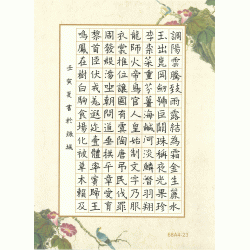 調陽雲騰致雨露結為霜金生麗水
玉出崑岡劍號巨闕珠稱夜光果珍
李柰菜重芥薑海鹹河淡鱗潛羽翔
龍師火帝鳥官人皇始制文字乃服
衣裳推位讓國有虞陶唐弔民伐罪
周發殷湯坐朝問道垂拱平章愛育
黎首臣伏戎羌遐邇壹體率賓歸王
鳴鳳在樹白駒食場化被草木賴及
壬寅夏書於城
B8A4-23